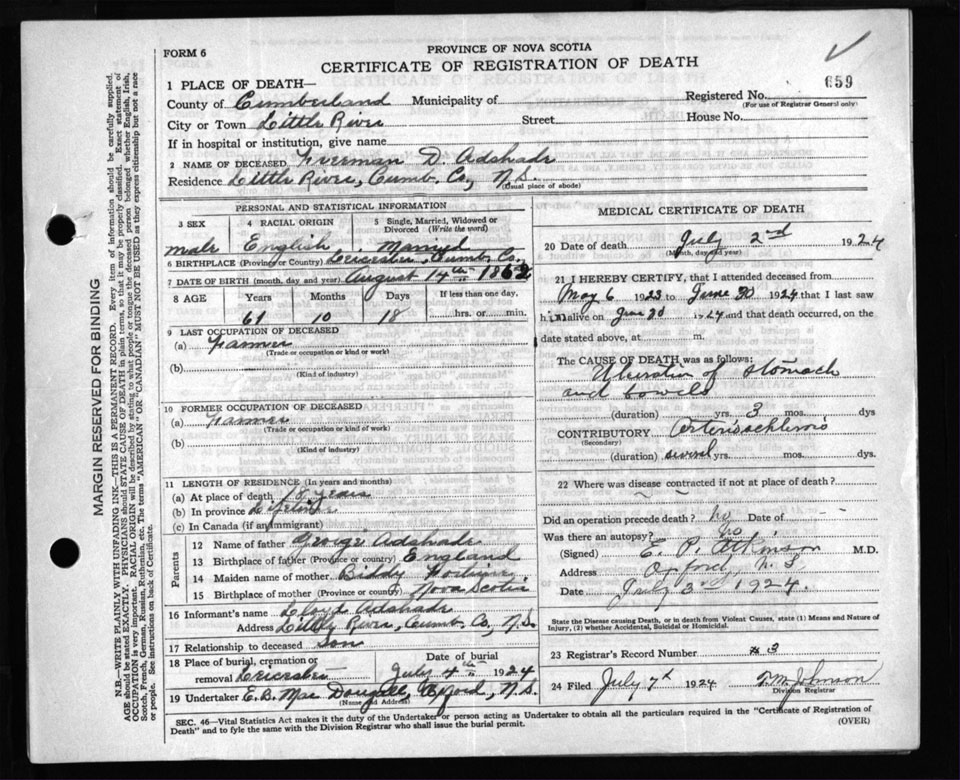 FORM 6
PROVINCE OF NOVA SCOTIA
CERTIFICATE OF REGISTRATION OF DEATH
1 PLACE OF DEATH—
Registered No. 659
(For use of Registrar General only)
County of Cumberland Municipality of
City or Town Little River Street House No.
If in hospital or institution, give name
2 NAME OF DECEASED Freeman D. Adshade
Residence Little River, Cumb. Co, N.S.
(Usual place of abode)
PERSONAL AND STATISTICAL INFORMATION
3 SEX 4 RACIAL ORIGIN 5 Single, Married, Widowed or Divorced (Write the word)
male English Married
6 BIRTHPLACE (Province or Country) Leicester, Cumb. Co,
7 DATE OF BIRTH (month, day and year) August 14th 1862
8 AGE Years Months Days If less than one day,
61 10 18 hrs. or min.
9 LAST OCCUPATION OF DECEASED
(a) Farmer
(Trade or occupation or kind or work)
(b)
(Kind of industry)
10 FORMER OCCUPATION OF DECEASED
(a) Farmer
(Trade or occupation or kind of work)
(b)
(Kind of industry)
11 LENGTH OF RESIDENCE (In years and months)
(a) At place of death 18 years
(b) In province Lifetime
(c) In Canada (if an immigrant)
Parents
12 Name of father George Adshade
13 Birthplace of father (Province or country) England
14 Maiden name of mother Biddy
15 Birthplace of mother (Province or country) Nova Scotia
16 Informant's name Lloyd Adshade
Address Little River, Cumb. Co, N.S.
17 Relationship to deceased Son
18 Place of burial, cremation or removal Leicester
Date of burial July 4th 1924
19 Undertaker E.B. Mac Dougall, Oxford, N.S.
(Name and Address)
MEDICAL CERTIFICATE OF DEATH
20 Date of death July 2nd 1924
(Month, day and year)
21 I HEREBY CERTIFY, that I attended deceased from
May 6 1923 to June 30 1924 that I last saw
him alive on June 30 1924 and that death occurred, on the
date stated above, at m.
The CAUSE OF DEATH was as follows:
Ulceration of stomach
and bowels
(duration) yrs. 3 mos. dys
CONTRIBUTORY Arteriosclerosis
(Secondary)
(duration) several yrs. mos. dys.
22 Where was disease contracted if not at place of death?
Did an operation precede death? No Date of —
Was there an autopsy? No
(Signed) E. P. Atkinson M.D.
Address Oxford, N.S
Date July 3rd 1924.
State the Disease causing Death, or in death from Violent Causes, state (1) Means and Nature of Injury, (2) whether Accidental, Suicidal or Homicidal.
23 Registrar's Record Number #3
24 Filed July 7th 1924 T.M. Johnson
Division Registrar
SEC. 46—Vital Statistics Act makes it the duty of the Undertaker or person acting as Undertaker to obtain all the particulars required in the "Certificate of Registration of
Death" and to fyle the same with the Division Registrar who shall issue the burial permit.
(OVER)
MARGIN RESERVED FOR BINDING
N.B.—WRITE PLAINLY WITH UNFADING INK—THIS IS A PERMANENT RECORD. Every item of information should be carefully supplied.
AGE should be stated EXACTLY. PHYSICIANS should STATE CAUSE OF DEATH in plain terms, so that it may be properly classified. Exact statement of
OCCUPATION is very important. RACIAL ORIGIN will be described by stating to what people or tongue the deceased person belonged whether English, Irish,
Scotch, French, German, Russian, Ruthenian, etc. The terms "AMERICAN" OR "CANADIAN" MUST NOT BE USED as they express citizenship but not a race
or people. See instructions on back of Certificate.